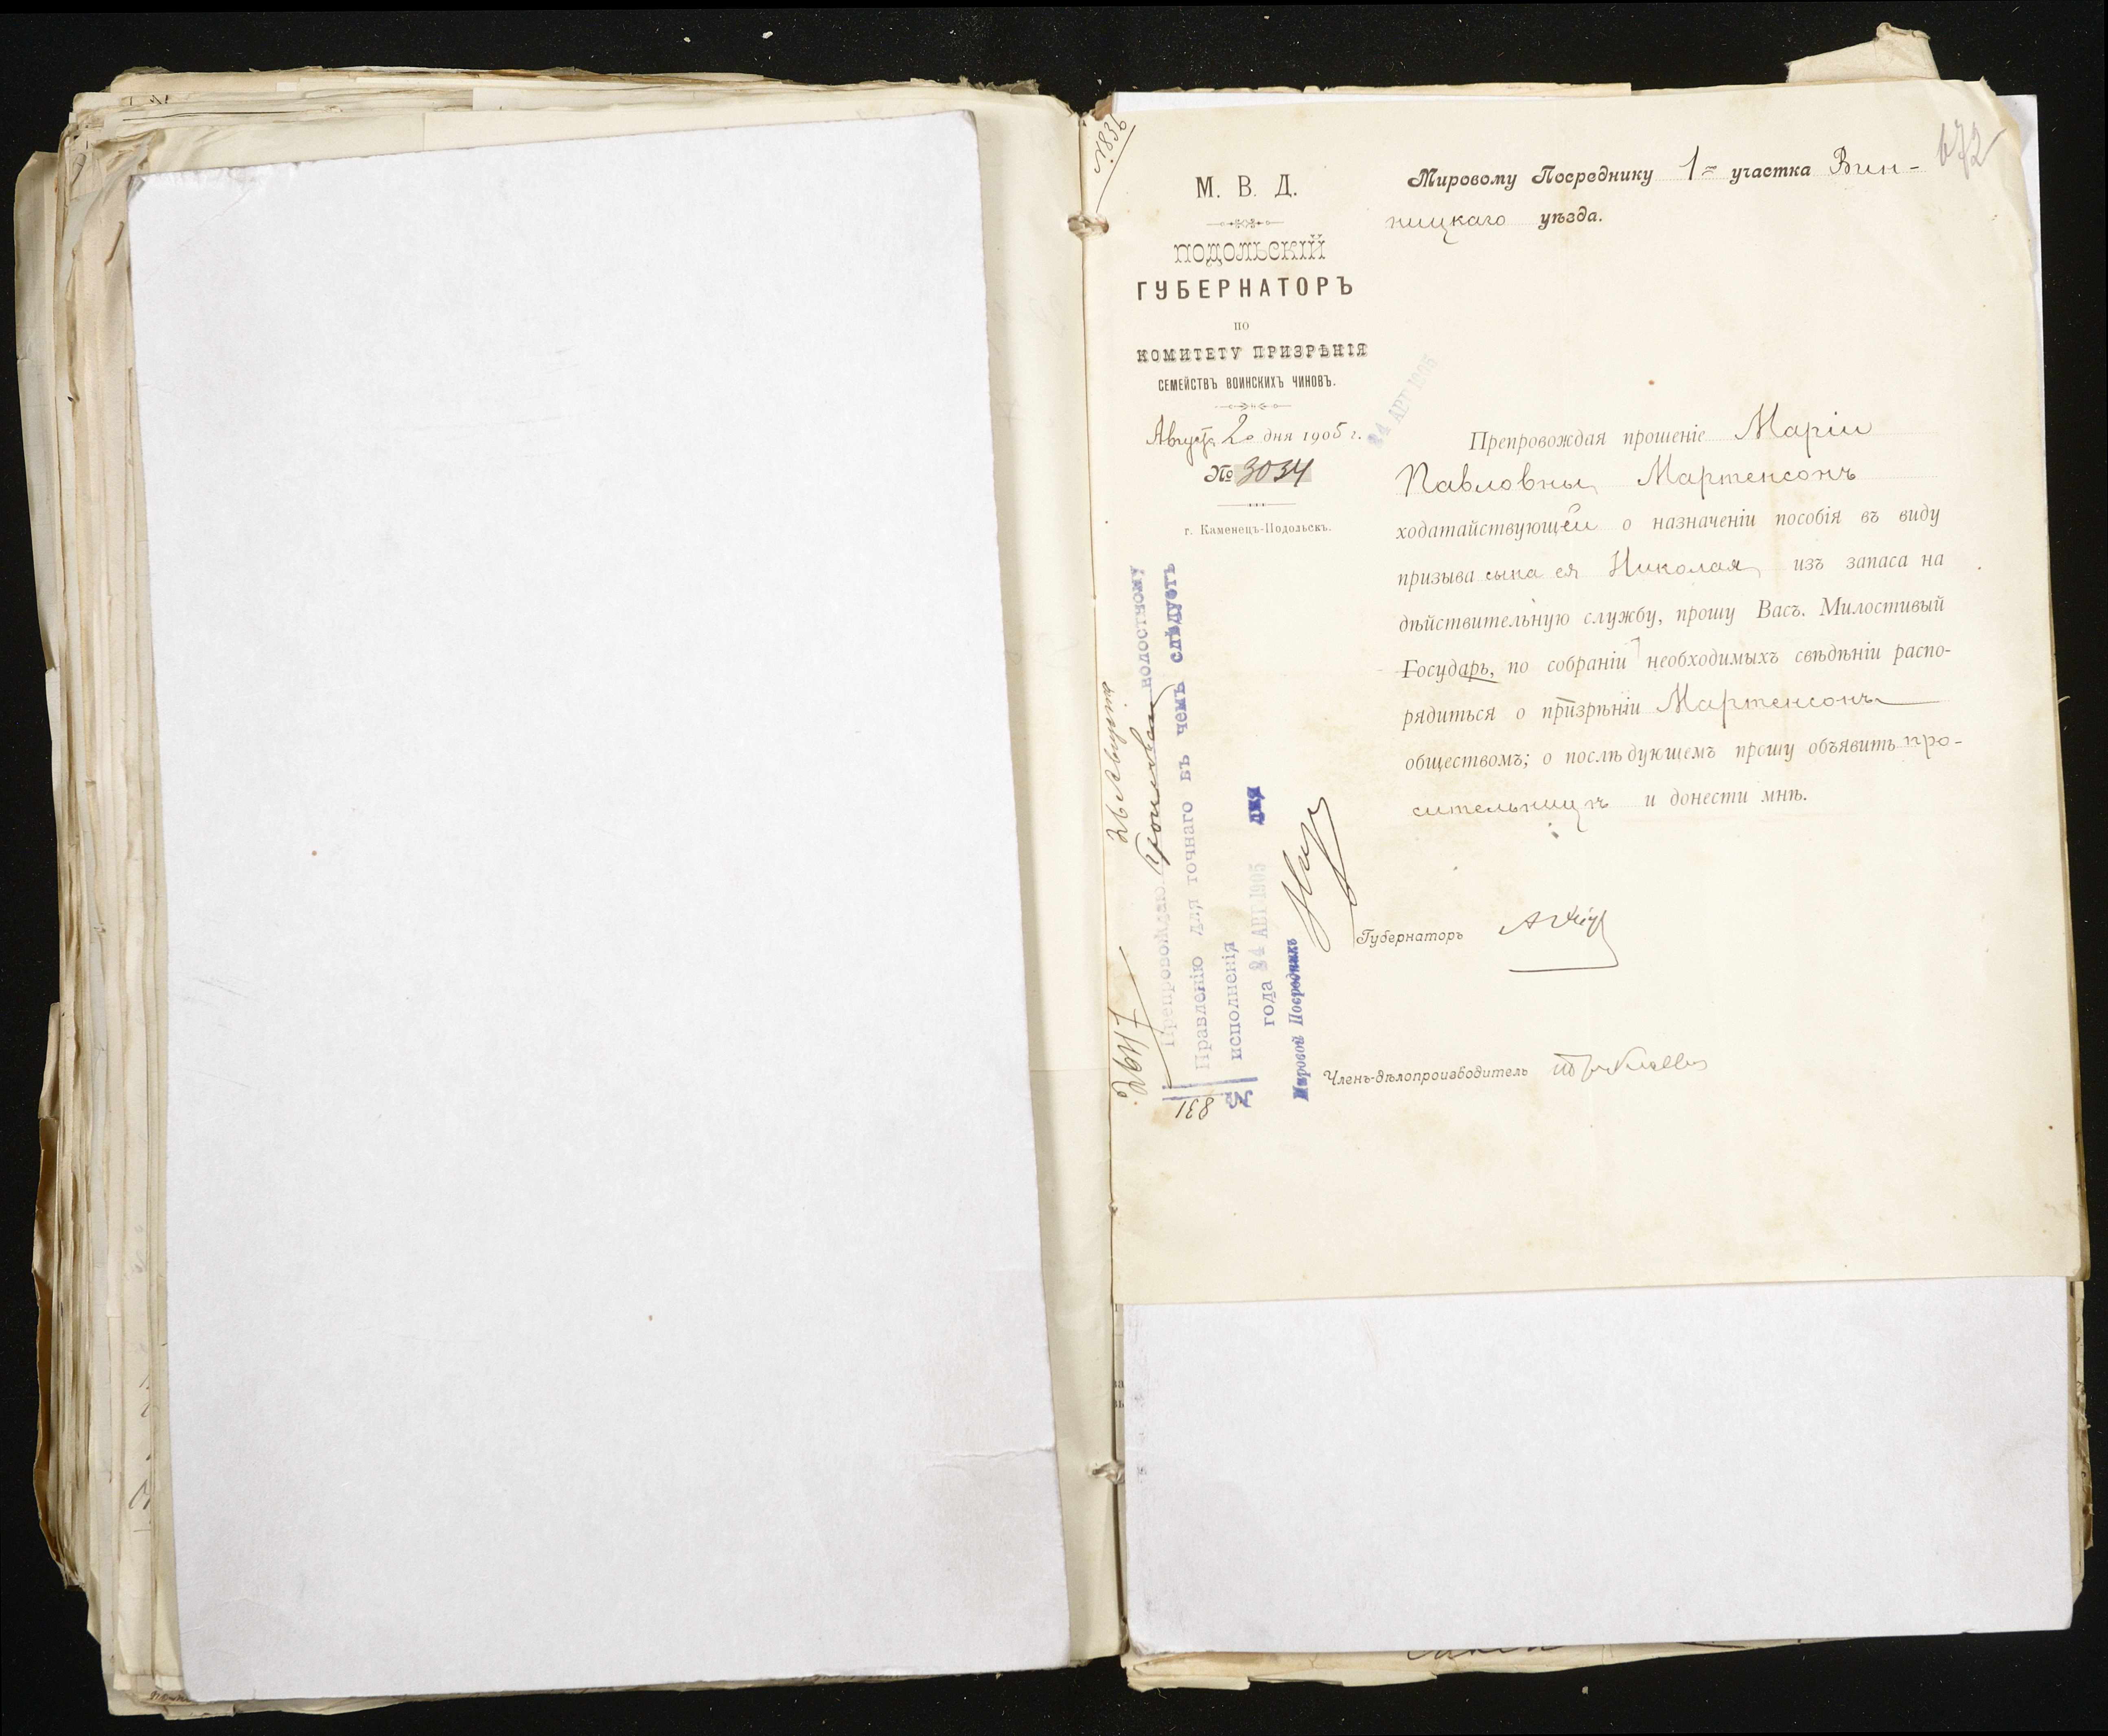 672
М. В. Д.
ПОДОЛЬСКІЙ
ГУБЕРНАТОРЪ
ПО
КОМИТЕТУ ПРИЗРѢНІЯ
СЕМЕЙСТВЪ ВОИНСКИХЪ ЧИНОВЪ.
Августа 20 дня 1905 г.
№ 3034
г. Каменецъ-Подольскъ.
Мировому Посреднику 1 участка Вин-
ницкаго уѣзда.
24 АВГ 1905
Препровождая прошеніе Маріи
Павловны Мартенсонъ
ходатайствующей о назначеніи пособія въ виду
призыва сына ея Николая изъ запаса на
дѣйствительную службу, прошу Васъ. Милостивый
Государь, по собраніи необходимыхъ свѣдѣніи распо-
рядиться о призрѣніи Мартенсонъ
обществомъ; о послѣдующемъ прошу объявить про-
сительницѣ и донести мнѣ.
Губернаторъ
Членъ-дѣлопроизводитель
2647
26 Августа
Препровождаю волостному
Правленію для точнаго въ чемъ слѣдуетъ
исполненія
года 24 АВГ 1905 дня
Мировой Посредникъ
№
831